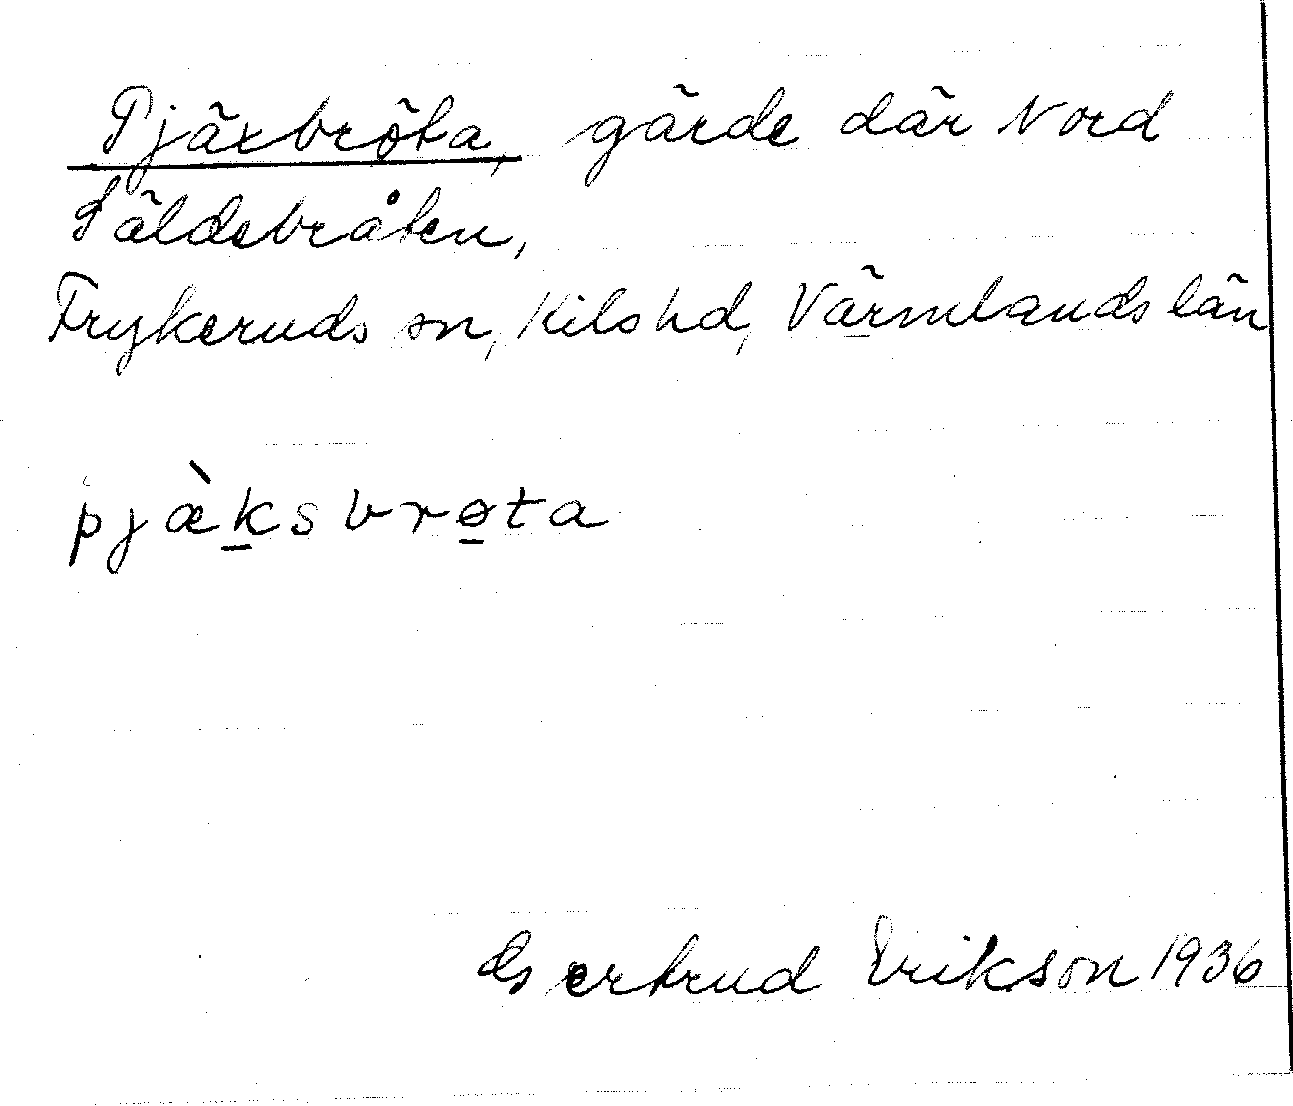 Pjäxbröta, gärde där Nord
Säldebråten,
Frykeruds sn, Kils hd, Värmlands län
pjæ̀ḵsbrø̱ta
Gertrud Erikson 1936